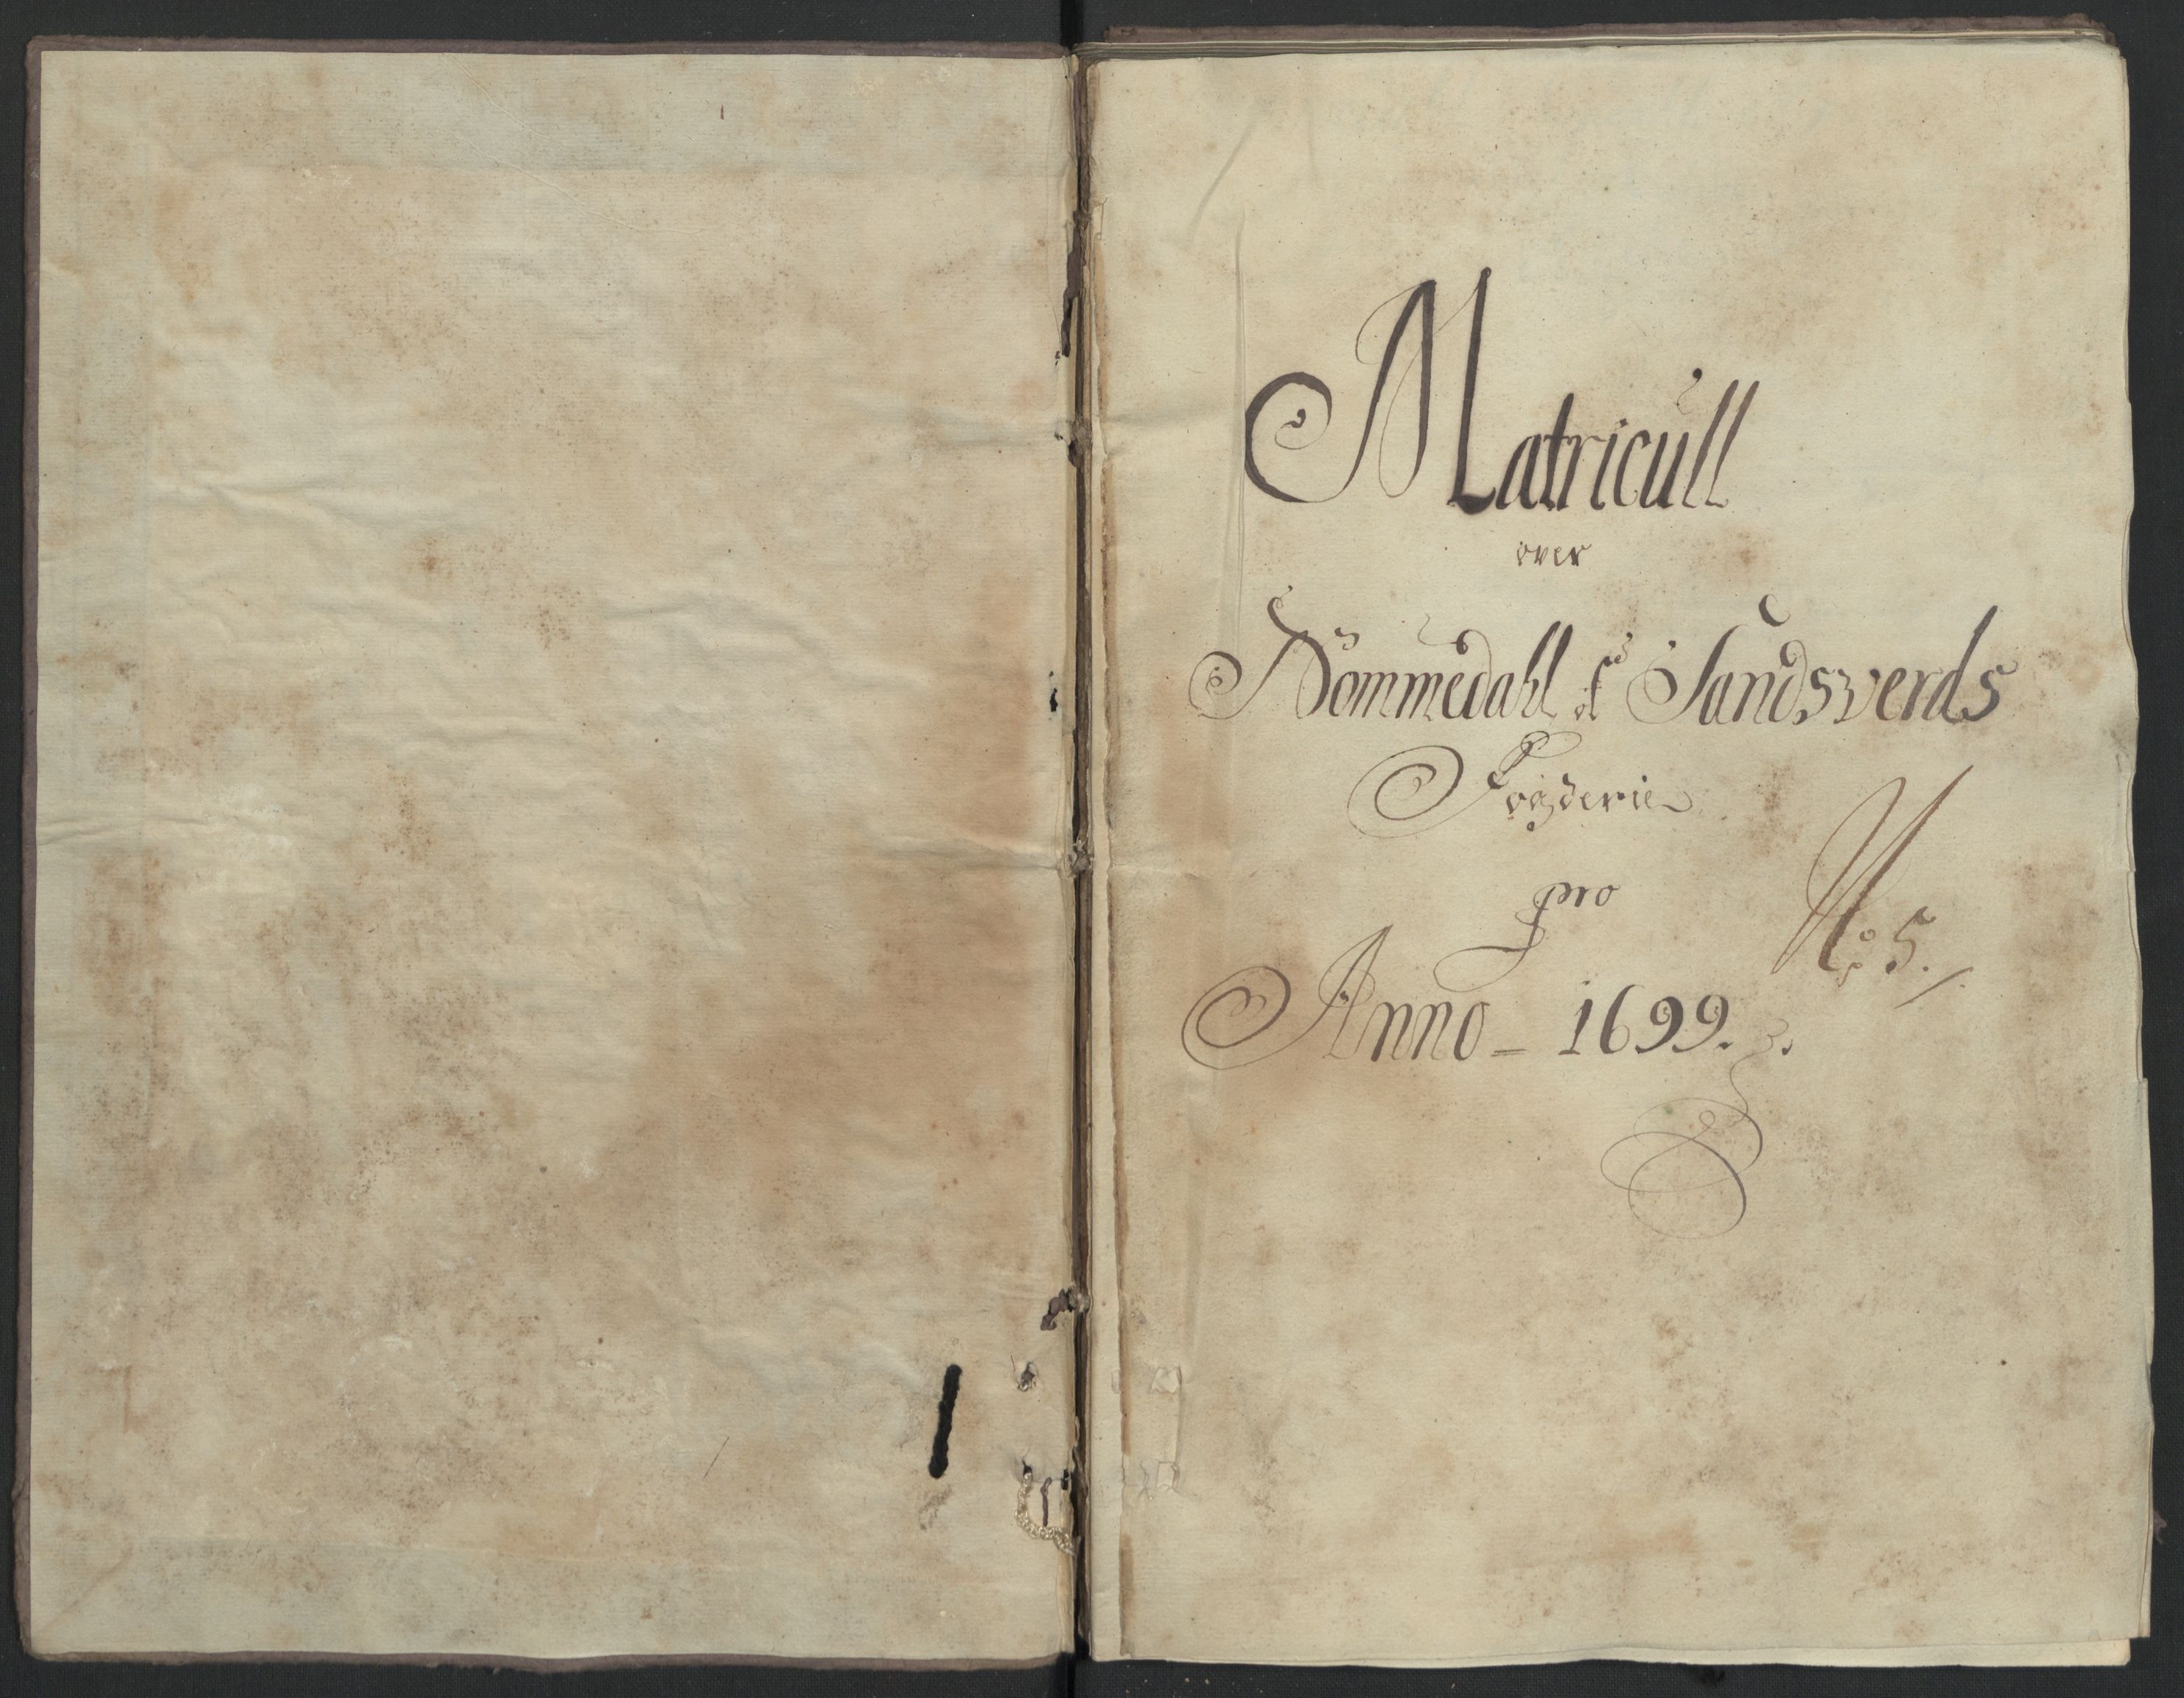 Matricull
over
Nommedahl et Sandsverds
Fogderie
pro
No 5.
Anno - 1699.